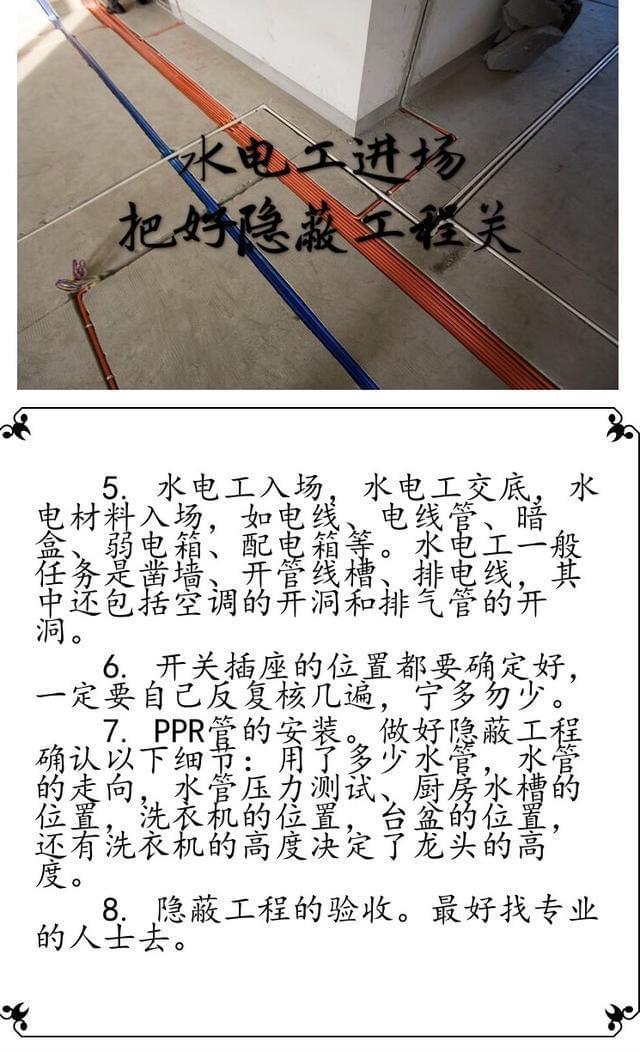 水电工进场
把好隐蔽工程关
5. 水电工入场，水电工交底，水
电材料入场，如电线、电线管、暗
盒、弱电箱、配电箱等。水电工一般
任务是凿墙、开管线槽、排电线，其
中还包括空调的开洞和排气管的开
洞。
6. 开关插座的位置都要确定好，
一定要自己反复核几遍，宁多勿少。
7. PPR管的安装。做好隐蔽工程
确认以下细节：用了多少水管，水管
的走向，水管压力测试、厨房水槽的
位置，洗衣机的位置，台盆的位置，
还有洗衣机的高度决定了龙头的高
度。
8. 隐蔽工程的验收。最好找专业
的人士去。